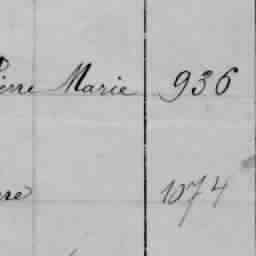 Pierre Marie 936
1074